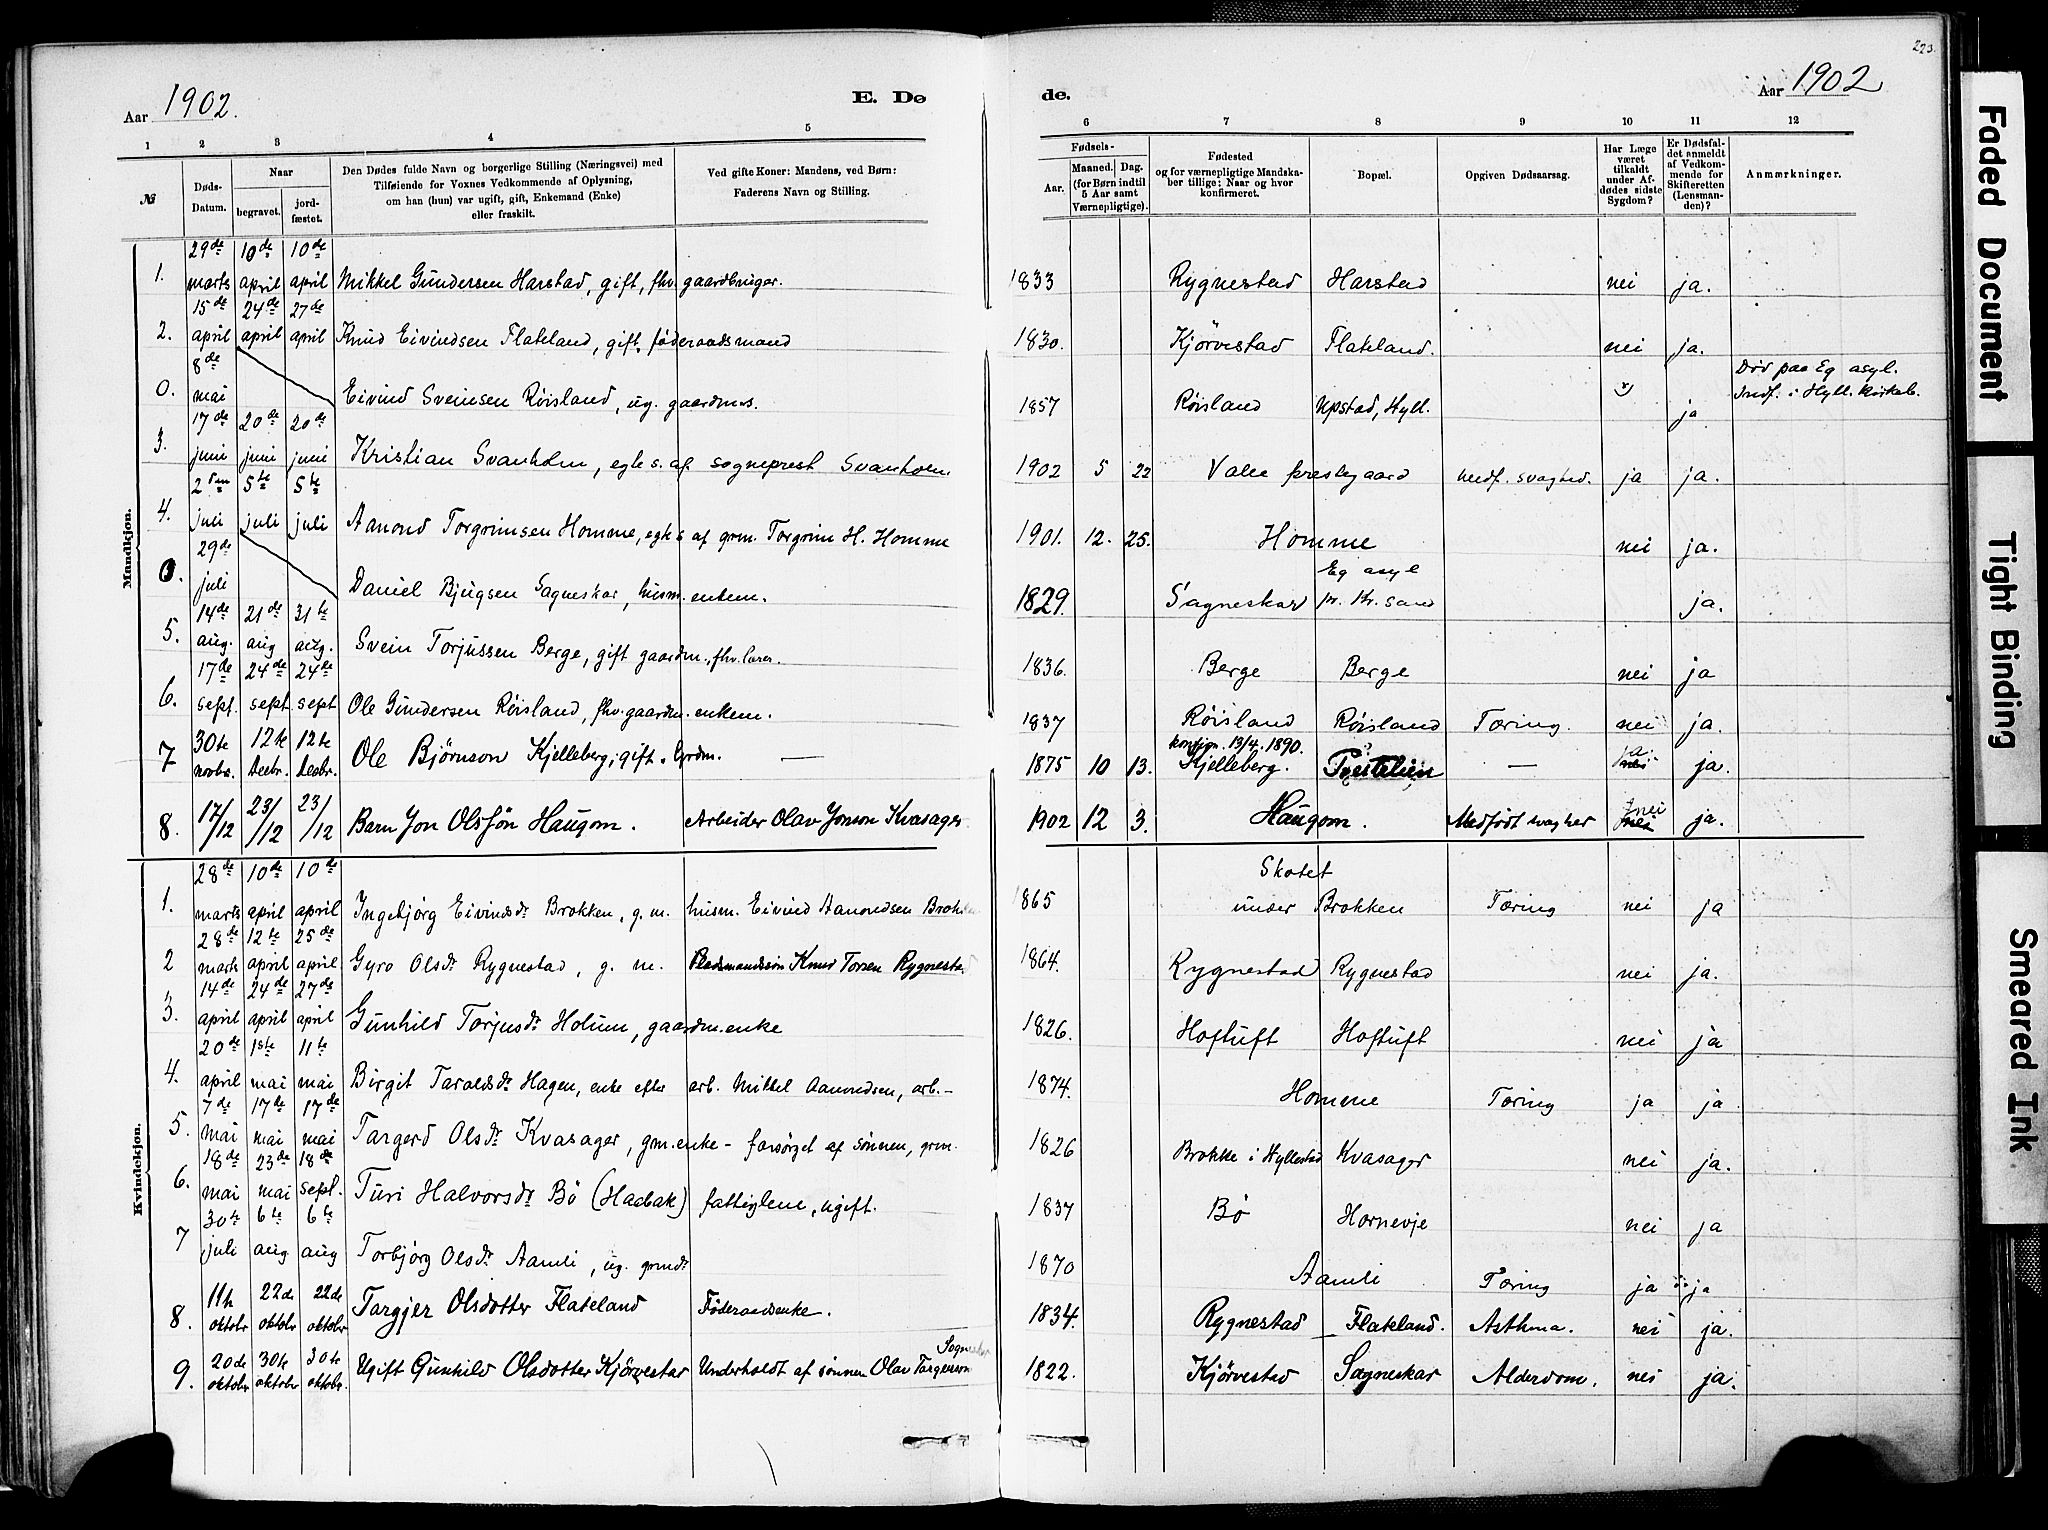 223.
Aar 1902.
E. Dø
de.
Aar 1902
1 2 3 4 5
6 7 8 9 10 11 12
№
Døds-
Datum.
Naar
begravet.
jord-
fæstet.
Den Dødes fulde Navn og borgerlige Stilling (Næringsvei) med
Tilføiende for Voxnes Vedkommende af Oplysning,
om han (hun) var ugift, gift, Enkemand (Enke)
eller fraskilt.
Ved gifte Koner: Mandens, ved Børn:
Faderens Navn og Stilling.
Fødsels-
Aar.
Maaned. Dag.
(for Børn indtil
5 Aar samt
Værnepligtige).
Fødested
og for værnepligtige Mandska-
ber tillige: Naar og hvor
konfirmeret.
Bopæl.
Opgiven Dødsaarsag.
Har Læge
været
tilkaldt
under Af-
dødes sidste
Sygdom?
Er Dødsfal-
det anmeldt
af Vedkom-
mende for
Skifteretten
(Lensman-
den)?
Anmærkninger.
Mandkjøn.
29de 10de 10de
1. marts april april Mikkel Gundersen Harstad, gift, fhv. gaardbruger. 1833 Rygnestad Harstad nei ja.
15de 24de 27de
2. april april april Knud Eivindsen Flateland, gift, føderaadsmand 1830. Kjörvestad Flateland. nei ja.
8de Død paa Eg asyl.
0. mai Eivind Sveinsen Røisland, ug. gaardm.s. 1857 Røisland Upstad, Hyll. ja Indf. i Hyll. kirkeb.
17de 20de 20de
3. juni juni juni Kristian Svanholm, egte s. af sogneprest Svanholm. 1902 5 22 Valle prestegaard medf. svaghed. ja ja.
2den 5te 5te
4. juli juli juli Aanond Torgrimsen Homme, egte s af grm. Torgrim H. Homme 1901. 12. 25. Homme nei ja.
29de Eg asyl
0. juli Daniel Bjugsen Sagneskar, husm. enkem. 1829. Sagneskar pr. Kr. sand ja.
14de 21de 31te
5. aug. aug aug. Svein Torjussen Berge, gift gaardm., fhv. lærer. 1836. Berge Berge nei ja
17de 24de 24de
6. sept. sept. sept Ole Gundersen Røisland, fhv. gaardm. enkem. 1837 Røisland Røisland Tæring. nei ja.
30te 12te 12te konfirm. 13/4. 1890. ja.
7 novbr. Decbr. Decbr. Ole Bjørnson Kjelleberg, gift. Grdm. — 1875 10 13. Kjelleberg. — nei ja.
8. 17/12 23/12 23/12 Barn Jon Olsføn Haugom. Arbeider Olav Jonson Kvasager. 1902 12 3. Haugom. Medfødt svaghed nei ja.
Kvindekjøn.
28de 10de 10de Skotet
1. marts april april Ingebjørg Eivindsdr Brokken, g. m. husm. Eivind Aanondsen Brokken 1865 under Brokken Tæring nei ja
28de 12te 25de
2 marts april april Gyro Olsdr Rygnestad, g. m. Pladsmandssøn Knud Torsen Rygnestad 1864. Rygnestad Rygnestad nei ja.
14de 24de 27de
3. april april april Gunhild Torjusdr Holum, gaardm. enke 1826. Hoftuft Hoftuft nei ja
20de 1ste 11te
4. april mai mai Birgit Taraldsdr Hagen, enke efter arb. Mikkel Aanondsen, arb.- 1874. Homme Tæring ja ja
7de 17de 17de
5. mai mai mai Targerd Olsdr Kvasager, gm. enke - forsørget af sønnen, grm. 1826 Brokke i Hyllestad Kvasager nei ja.
18de 23de 18de
6. mai mai sept. Turi Halvorsdr Bø (Hacbak) fattiglem, ugift. 1837 Bø Hornevje nei ja
30te 6te 6te
7 juli aug aug Torbjørg Olsdr Aamli, ug. grmdr 1870 Aamli Tæring ja ja
11te 22de 22de
8. oktobr oktobr oktobr Targjer Olsdotter Flateland Føderaadsenke. 1834. Rygnestad Flateland. Asthma. nei ja.
20de 30te 30te
9. oktobr oktobr oktobr. Ugift Gunhild Olsdotter Kjørvestad Underholdt af sønnen Olav Targerson 1822. Kjørvestad Sagneskar Alderdom. nei ja.
Faded Document
Tight Binding
Smeared Ink